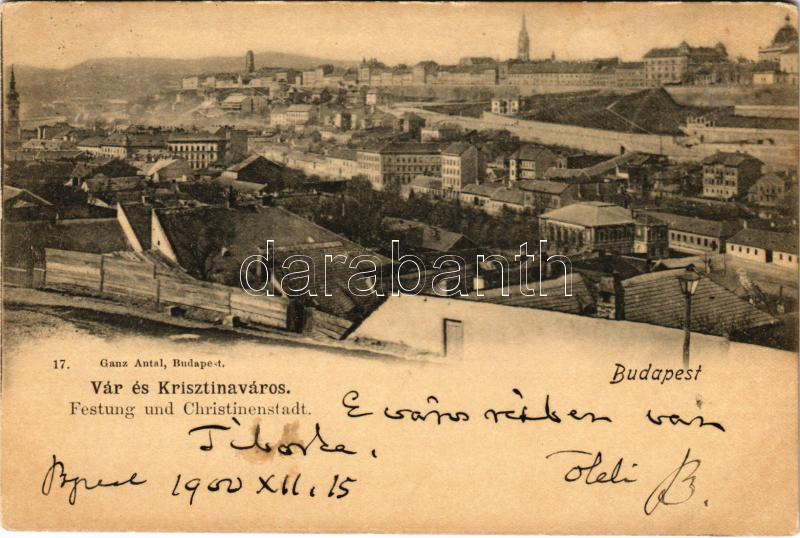 darabanth
17. Ganz Antal, Budapest.
Budapest
Vár és Krisztinaváros.
Festung und Christinenstadt.
E város részben van
Tiborka.
Öleli B.
Bpest 1900 XII. 15